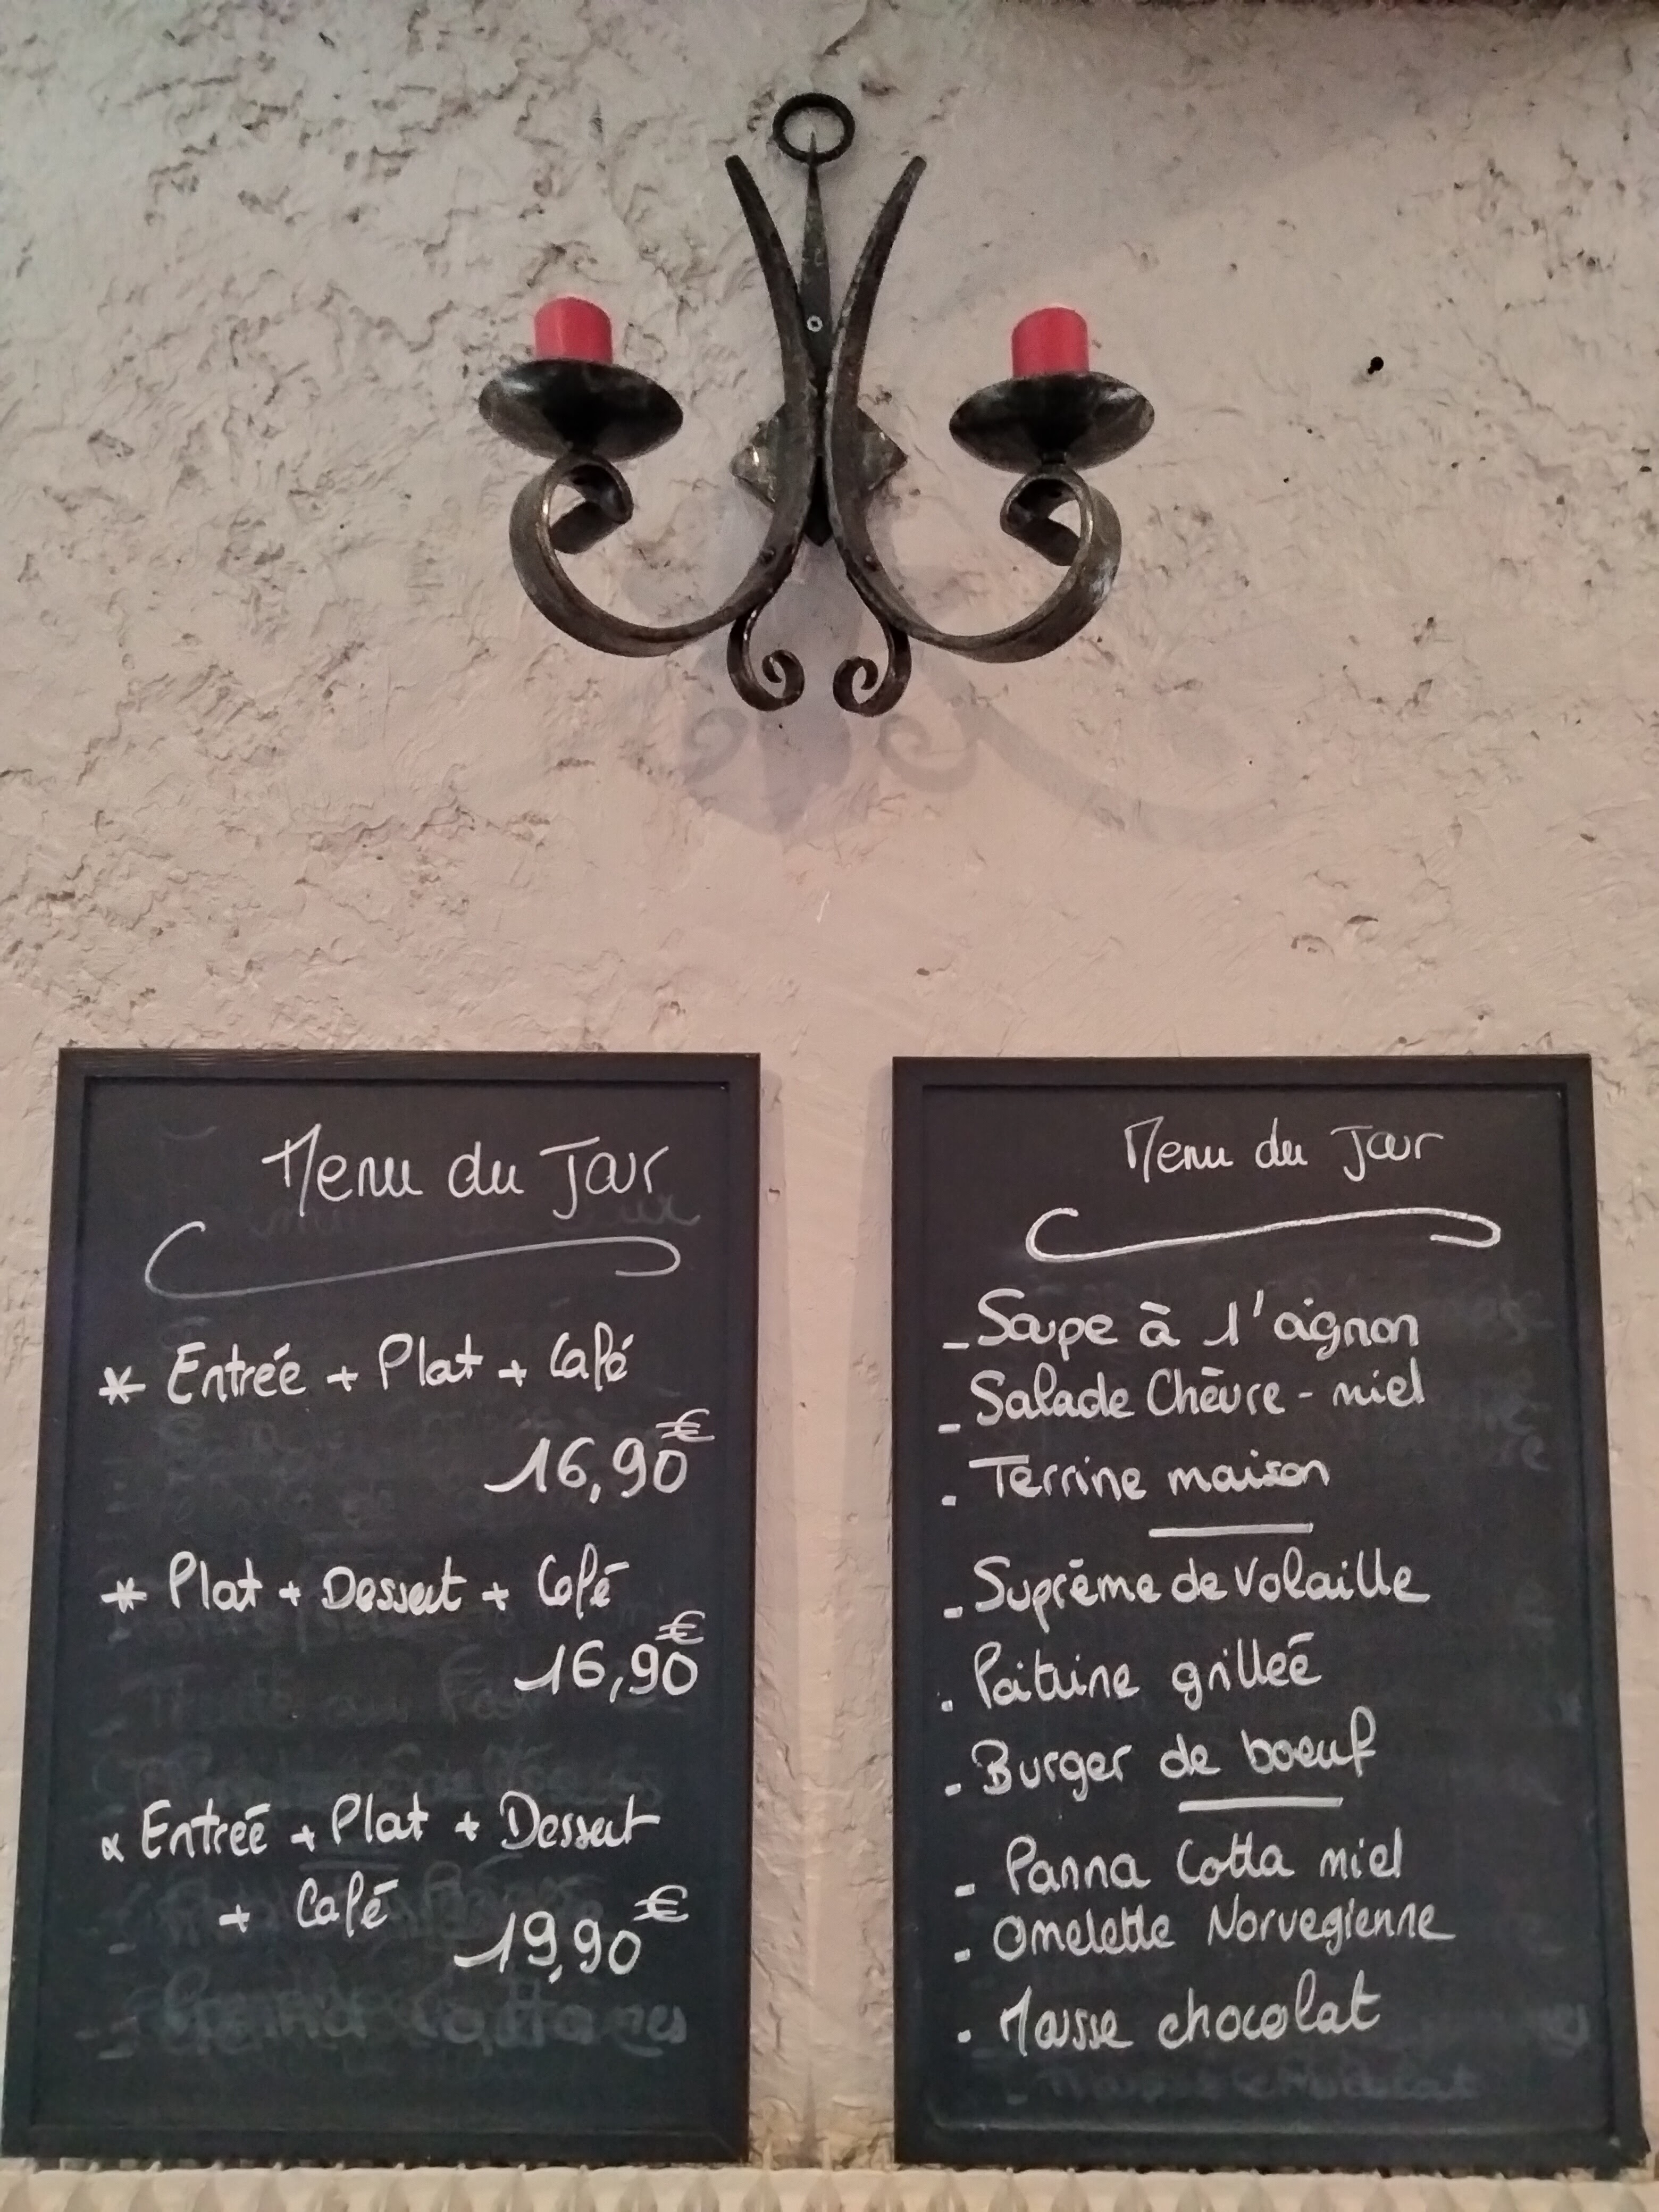 Menu du Jour
* Entrée + Plat + Café
16,90€
* Plat + Dessert + Café
16,90€
* Entrée + Plat + Dessert
+ Café
19,90€
Menu du Jour
- Soupe à l'oignon
- Salade Chèvre - miel
- Terrine maison
- Suprême de Volaille
- Poitrine grillée
- Burger de boeuf
- Panna Cotta miel
- Omelette Norvegienne
- Mousse chocolat